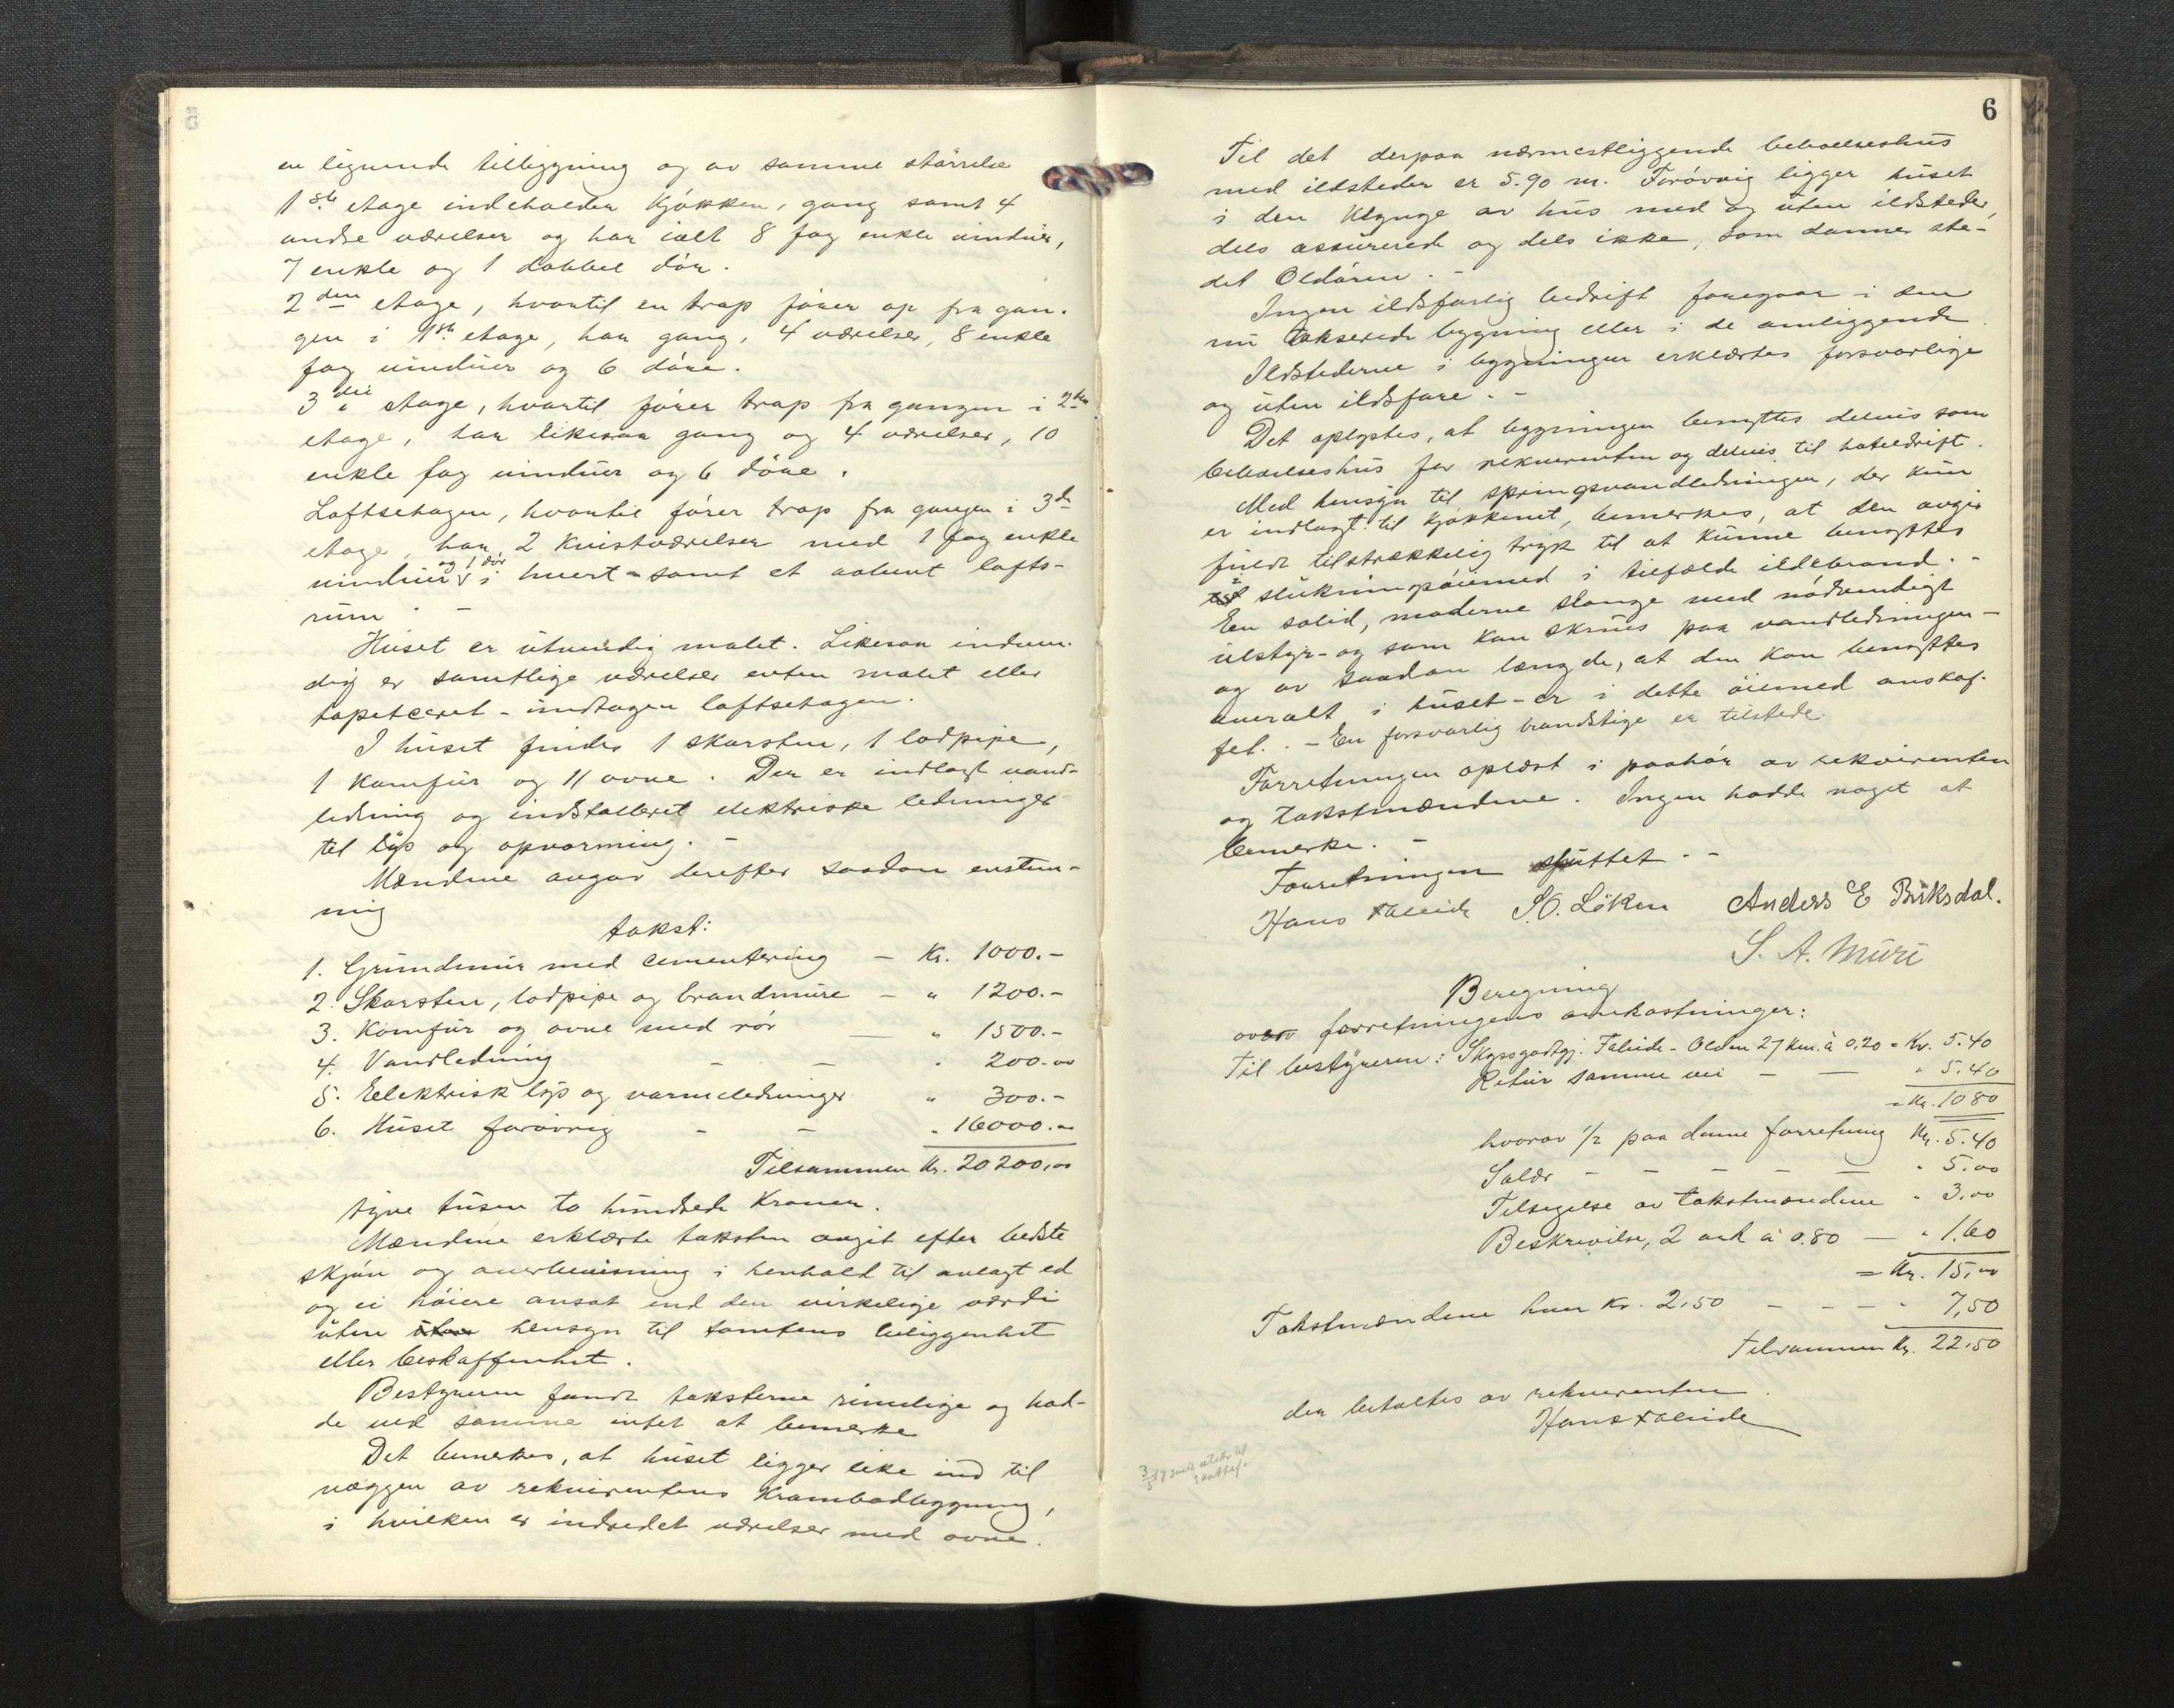 en lignende tilbygning og av samme störrelse
1ste etage indeholder kjøkken, gang samt 4
andre værelser og har ialt 8 fag enkle vinduer,
7 enkle og 1 dobbel dör.
2den etage, hvortil en trap fører op fra gan-
gen i 1ste etage, har gang, 4 værelser, 8 enkle
fag vinduer og 6 døre.
3die etage, hvortil fører trap fra gangen i 2den
etage, har likesaa gang og 4 værelser, 10
enkle fag vinduer og 6 døre.
Loftsetagen, hvortil fører trap fra gangen i 3de
etage, har 2 kvistværelser med 1 fag enkle
vinduer og 1 dør i hvert - samt et aapent lofts-
rum. -
Huset er utvendig malet. Likesaa indven-
dig er samtlige værelser enten malet eller
tapetceret - undtagen loftsetagen.
I huset findes 1 skorsten, 1 lodpipe,
1 komfur og 11 ovne. Der er indlagt vand-
ledning og indstalleret elektriske ledninger
til lys og opvarming. -
Mændene avgav derefter saadan enstem-
mig
takst:
1. Grundmur med cementering - Kr. 1000.-
2. Skorsten, lodpipe og brandmure - " 1200.-
3. Komfur og ovne med rör - " 1500.-
4. Vandledning - - " 200.00
5. Elektrisk lys og varmeledninger " 300.-
6. Huset forøvrig - - " 16000.-
Tilsammen Kr. 20200,00
tyve tusen to hundrede Kroner.
Mændene erklærte taksten avgit efter bedste
skjøn og overbevisning i henhold til avlagt ed
og ei høiere ansat end den virkelige værdi
uten uten hensyn til tomtens beliggenhet
eller beskaffenhet.
Bestyreren fandt taksterne rimelige og had-
de ved samme intet at bemerke
Det bemerkes, at huset ligger like ind til
væggen av rekvirentens Krambodbygning,
i hvilken er indredet værelser med ovne.
6
Til det derpaa nærmestliggende beboelseshus
med ildsteder er 5.90 m. Forövrig ligger huset
i den Klynge av hus med og uten ildsteder,
dels assurerede og dels ikke, som danner ste-
det Oldören. -
Ingen ildsfarlig bedrift foregaar i den
nu takserede bygning eller i de omliggende.
Ildstederne i bygningen erklærtes forsvarlige
og uten ildsfare. -
Det oplystes, at bygningen benyttes delvis som
beboelseshus for rekvirenten og delvis til hoteldrift.
Med hensyn til springvandledningen, der kun
er indlagt til kjøkkenet, bemerkes, at den avgir
fuldt tilstrækkelig tryk til at kunne benyttes
i slukningsøiemed i tilfælde ildebrand. -
En solid, moderne slange med nødvendigt
utstyr - og som kan skrues paa vandledningen -
og av saadan længde, at den kan benyttes
overalt i huset - er i dette öiemed anskaf-
fet. - En forsvarlig brandstige er tilstede.
Forretningen oplæst i paahør av rekvirenten
og takstmændene. Ingen hadde noget at
bemerke. -
Forretningen sluttet. -
Hans Faleide S. O. Löken Anders E Briksdal.
S. A. Muri
Beregning
over forretningens omkostninger:
Til bestyreren: Skyssgodtgj. Faleide - Olden 27 km. à 0.20 = Kr. 5.40
Retur samme vei - - " 5.40
= Kr. 10 80
hvorav 1/2 paa denne forretning Kr. 5.40
Salær - - - - - " 5.00
Tilsigelse av takstmændene " 3.00
Beskrivelse, 2 ark à 0.80 - " 1.60
= Kr. 15,00
Takstmændene hver Kr. 2.50 - - - - " 7,50
Tilsammen Kr. 22.50
der betaltes av rekvirenten.
Hans Faleide